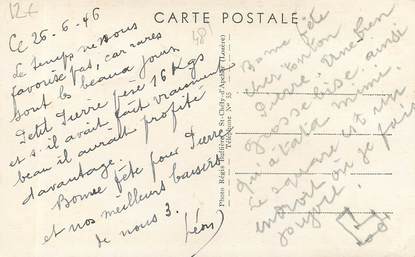 12€
CARTE POSTALE
48
Ce 26-6-46
Le temps ne nous
favorise pas, car rares
sont les beaux jours
Petit Pierre pèse 16 Kgs
et s'il avait fait vraiment
beau il aurait profité
davantage.
Bonne fête pour Pierre
et nos meilleurs baisers
de nous 3.
Léon
Photo Régis Bufférne, St-Chély-d'Apcher (Lozère)
Téléphone No 35
Bonne fête
cher tonton
Pierre. Une bien
grosse bise, ainsi
qu'à tata mimi.
Le square est un
endroit où je fais